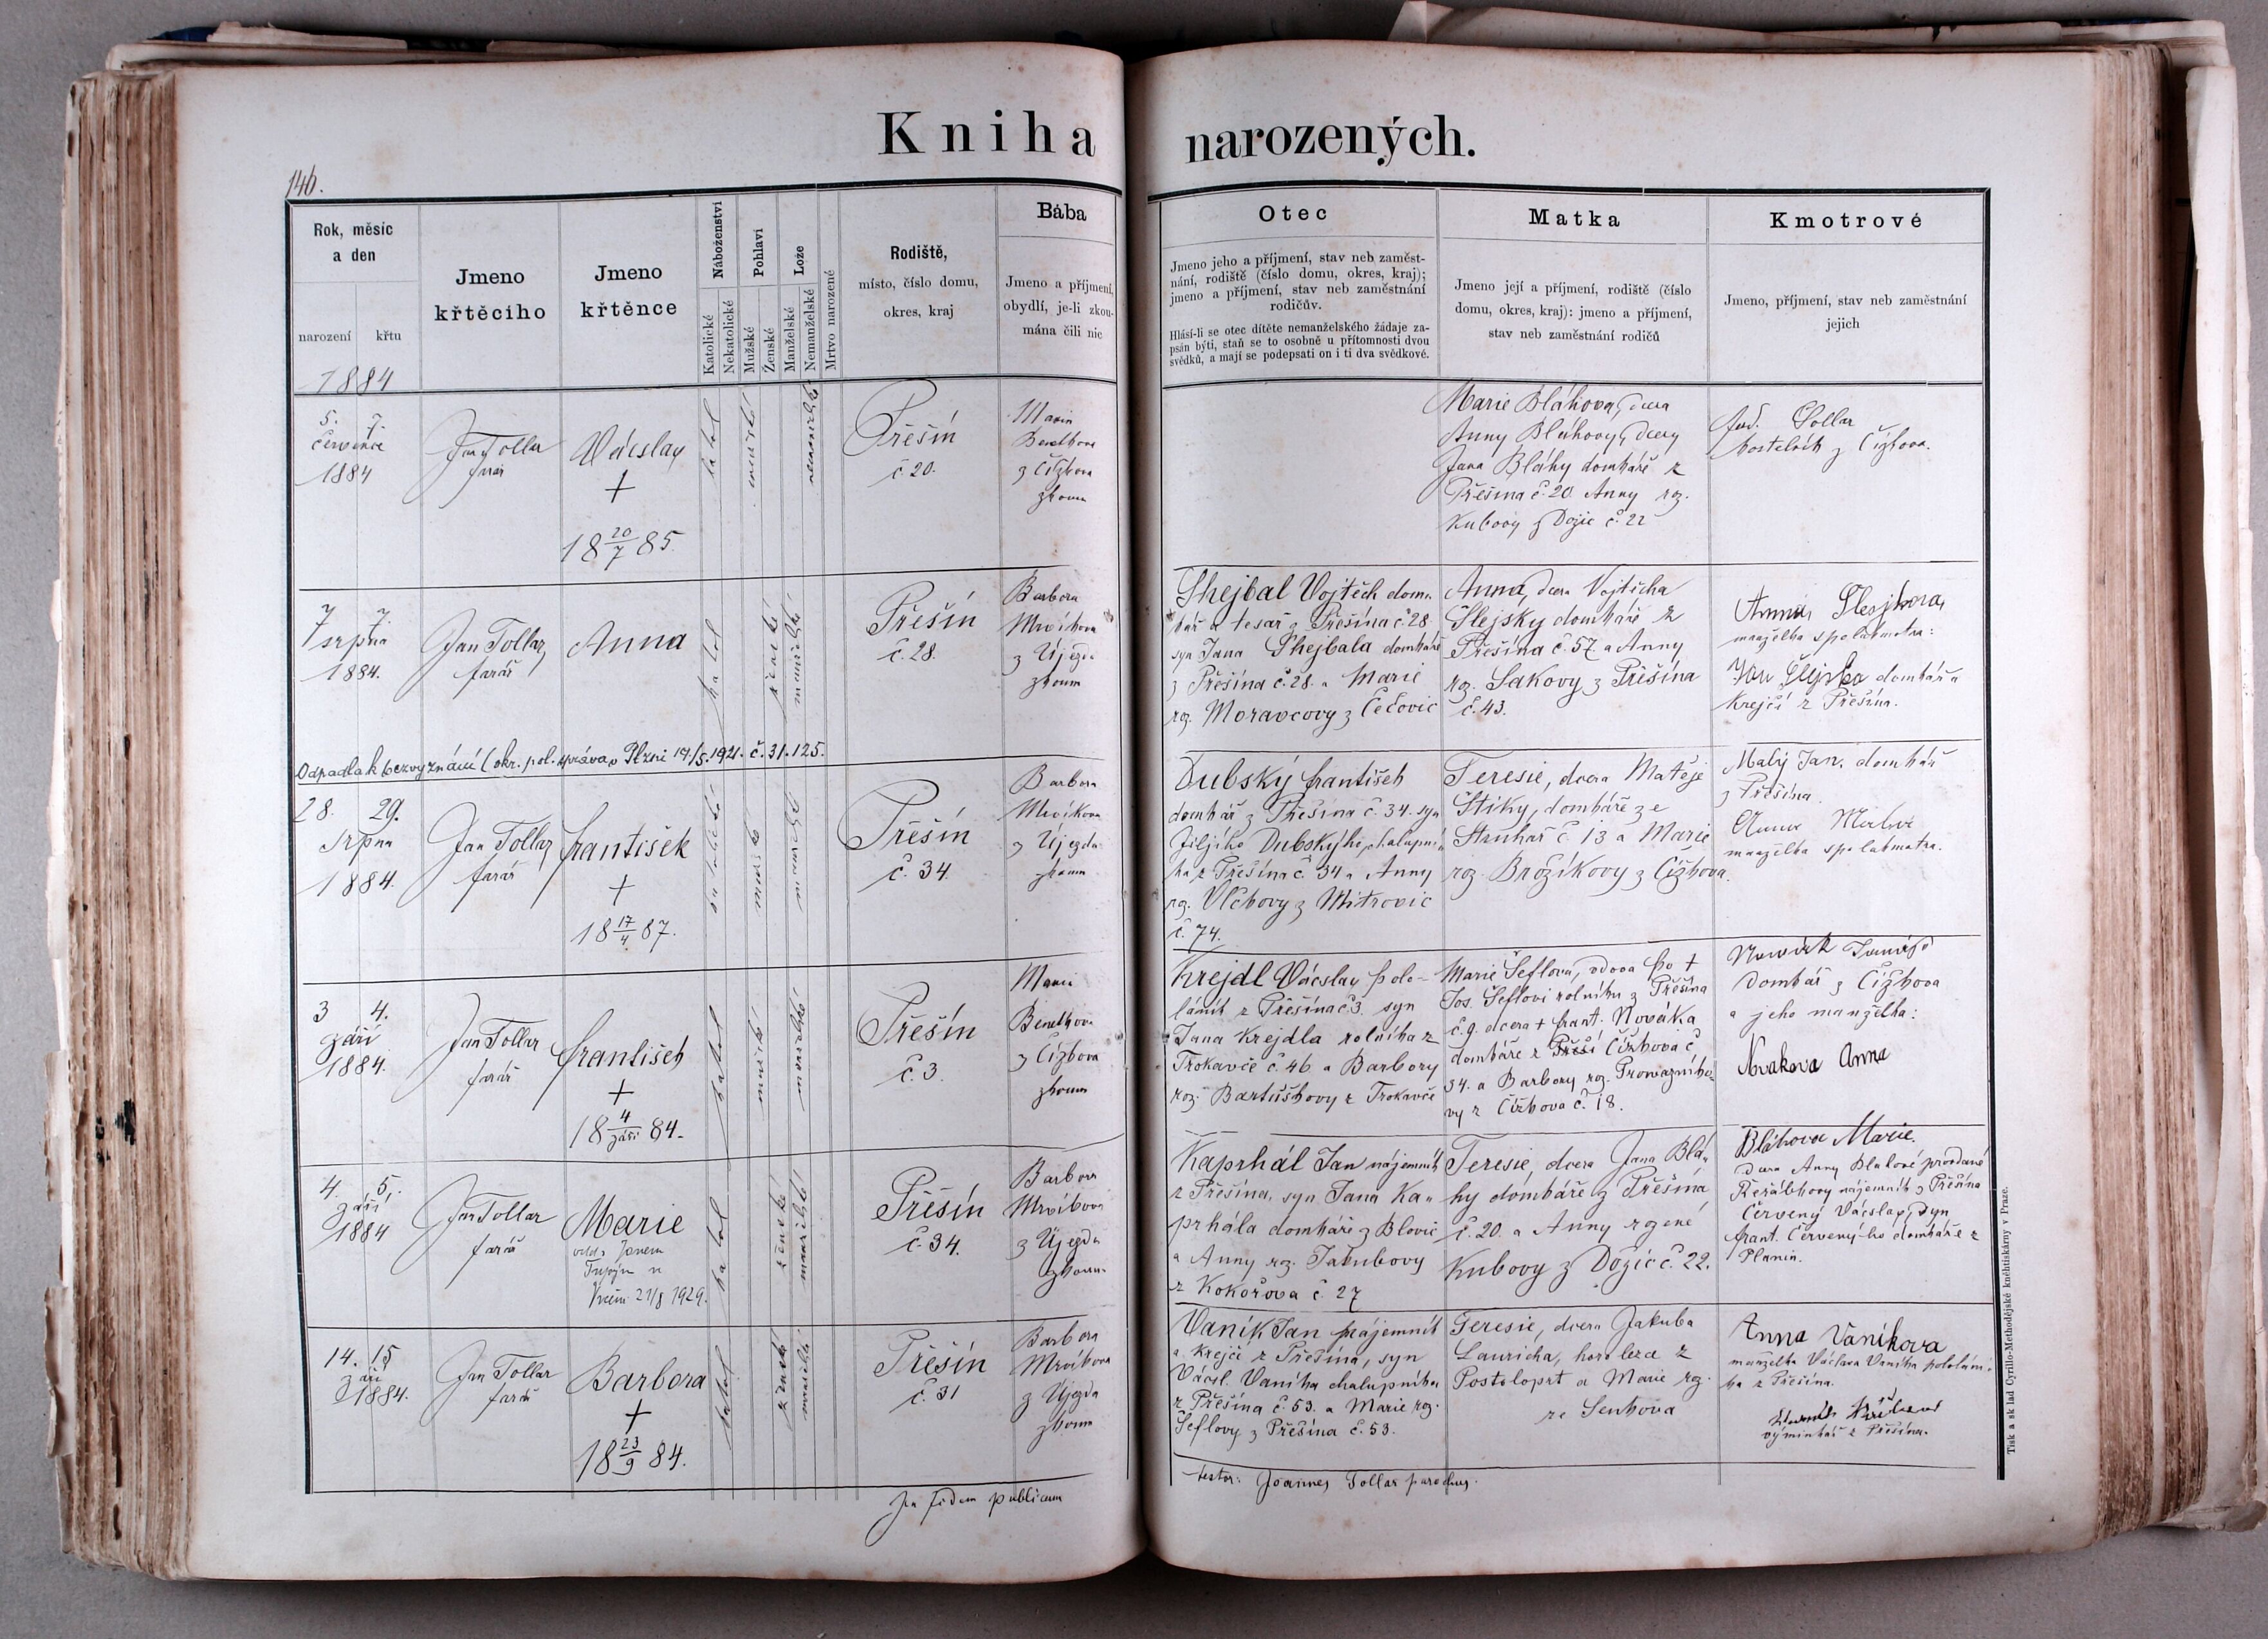 Kniha narozených.
146.
Rok, měsíc
a den
narození křtu
1884
Jmeno
křtěcího
Jmeno
křtěnce
Náboženství
Katolické
Nekatolické
Pohlaví
Mužské
Ženské
Lože
Manželské
Nemanželské
Mrtvo narozené
Rodiště,
místo, číslo domu,
okres, kraj
Bába
Jmeno a příjmení,
obydlí, je-li zkou-
mána čili nic
Otec
Jmeno jeho a příjmení, stav neb zaměst-
nání, rodiště (číslo domu, okres, kraj);
jmeno a příjmení, stav neb zaměstnání
rodičův.
Hlásí-li se otec dítěte nemanželského žádaje za-
psán býti, staň se to osobně u přítomnosti dvou
svědků, a mají se podepsati on i ti dva svědkové.
Matka
Jmeno její a příjmení, rodiště (číslo
domu, okres, kraj): jmeno a příjmení,
stav neb zaměstnání rodičů
Kmotrové
Jmeno, příjmení, stav neb zaměstnání
jejich
5. 7.
července
1884
Jan Tollar
farář
Vácslav
+
18 20/7 85.
katol
mužské
nemanželské
Přešín
č 20.
Marie
z Čížkova
zkoum
Marie Bláhova, dcera
Anny Bláhovy, dcery
Jana Bláhy domkáře z
Přešína č. 20. Anny roz.
Kubovy z Dožic č. 22
Tollar
kostelník z Čížkova.
7 7.
srpna
1884.
Jan Tollar,
farář
Anna
katol
ženské
manželské
Přešín
č. 28.
Barbora
Mrvíkova
z Újezda
zkoum
Shejbal Vojtěch dom-
kář a tesař z Přešína č 28
syn Jana Shejbala domkáře
z Přešína č. 28. a Marie
roz. Moravcovy z Čečovic
Anna, dcera Vojtěcha
Šlejsky domkáře z
Přešína č. 57 a Anny
roz. Sakovy z Přešína
č. 43.
Anna
manželka spolukmotra:
Jan domkář a
krejčí z Přešína.
Odpadla k bezvyznání (okr. pol. správa v Plzni 14/5. 1921. č. 31.125.
28. 29.
srpna
1884.
Jan Tollar
farář
František
+
18 17/4 87.
mužské
manželské
Přešín
č. 34.
Barbora
Mrvíkova
z Újezda
zkoum
Dubský František
domkář z Přešína č. 34. syn
Jiljího Dubskýho, chalupní-
ka z Přešína č. 34 a Anny
roz. Vlčkovy z Mitrovic
č. 74.
Teresie, dcera Matěje
Štiky, domkáře ze
č. 13 a Marie
roz. Brožíkovy z Čížkova.
Malý Jan, domkář
z Přešína.
Anna
manželka spolukmotra.
3 4.
září
1884.
Jan Tollar
farář
František
+
18 4/září 84.
katol
mužské
manželské
Přešín
č. 3.
Marie
z Čížkova
zkoum
Krejdl Vácslav polo-
láník z Přešína č 3. syn
Jana Krejdla rolníka z
Trokavče č. 46 a Barbory
roz. Bartůškovy z Trokavče
Marie Šeflova, vdova po +
Jos. Šeflovi rolníku z Přešína
č. 9. dcera + Frant. Nováka
domkáře z Čížkova č
34. a Barbory roz.
vy z Čížkova č. 18.
Nowák
domkář z Čížkova
a jeho manželka:
Anna
4. 5.
září
1884
Jan Tollar
farář
Marie
odd. s Janem
21/8 1929.
katol
ženské
manželské
Přešín
č. 34.
Barbora
Mrvíkova
z Újezda
zkoum
Kaprhál Jan nájemník
z Přešína, syn Jana Ka-
prhála domkáře z Blovic
a Anny roz. Jakubovy
z Kokořova č. 27
Teresie, dcera Jana Blá-
hy domkáře z Přešína
č. 20. a Anny rozené
Kubovy z Dožic č. 22.
Bláhova Marie.
dcera Anny provdané
nájemník z Přešína
Červený Vácslav, syn
Frant. Červený-ho domkáře z
Planin.
14. 15
září
1884.
Jan Tollar
farář
Barbora
+
18 23/9 84.
katol
ženské
manželské
Přešín
č. 31
Barbora
Mrvíkova
z Újezda
zkoum
Vaník Jan nájemník
a krejčí z Přešína, syn
Vácsl. Vaníka chalupníka
z Přešína č. 53. a Marie roz.
Šeflovy z Přešína č. 53.
Teresie, dcera Jakuba
Lauricha, horolezce z
Postoloprt a Marie roz.
Anna Vaníkova
manželka Václava Vaníka pololání-
ka z Přešína.
výminkář z Přešína.
In fidem publicam
testor: Joannes Tollar parochus.
Tisk a sklad Cyrillo-Methodějské knihtiskárny v Praze.